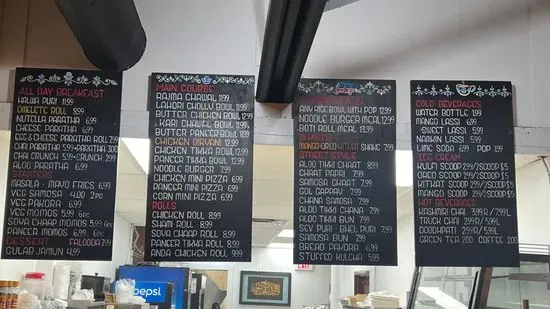 ALL DAY BREAKFAST
HALWA PURI 11.99
OMELETE ROLL 5.99
NUTELLA PARATHA 6.99
CHEESE PARATHA 6.99
EGG & CHEESE PARATHA ROLL 7.99
CHAI PARATHA 5.99
CHAI CRUNCH 5.99
ALOO PARATHA 6.99
STARTERS
MASALA - MAYO FRIES 6.99
VEG SAMOSA 4.00 2PC
VEG PAKORA 6.99
VEG MOMOS 5.99 6PC
SOYA CHAAP MOMOS 6PC
PANEER MOMOS 6PC
DESSERT FALOODA 7.99
GULAB JAMUN 4.99
MAIN COURSE
RAJMA CHAWAL 11.99
LAHORI CHOLLY BOWL 11.99
BUTTER CHICKEN BOWL 12.99
KARI CHAWAL BOWL 11.99
BUTTER PANEER BOWL 11.99
CHICKEN BIRYANI 12.99
CHICKEN TIKKA BOWL 12.99
PANEER TIKKA BOWL 12.99
NOODLE BURGER 7.99
CHICKEN MINI PIZZA 6.99
PANEER MINI PIZZA 6.99
CORN MINI PIZZA 6.99
ROLLS
CHICKEN ROLL 8.99
SHAMI ROLL 8.99
SOYA CHAAP ROLL 8.99
PANEER TIKKA ROLL 8.99
ANDA CHICKEN ROLL 9.99
ANY RICE BOWL WITH POP 12.99
NOODLE BURGER MEAL 12.99
BOTI ROLL MEAL 13.99
SHAKES
MANGO OREO KITKAT SHAKE 7.99
STREET STYLE
ALOO TIKKI CHAAT 8.99
CHAAT PAPRI 7.99
SAMOSA CHAAT 7.99
GOL GAPPAY 7.99
CHANA SAMOSA 7.99
ALOO TIKKI CHANA 7.99
ALOO TIKKI BUN 7.99
SEV PURI - BHEL PURI 7.99
SAMOSA BUN 7.99
BREAD PAKORA 6.99
STUFFED KULCHA 5.99
COLD BEVERAGES
WATER BOTTLE 1.99
MANGO LASSI 6.99
SWEET LASSI 5.99
NAMKIN LASSI 5.99
LIMC SODA 6.99 POP 1.99
ICE CREAM
KULFI SCOOP 3.99/2SCOOP $
OREO SCOOP 3.99/2SCOOP $
KITKAT SCOOP 2.99/2SCOOP $
MANGO SCOOP 2.99/2SCOOP $
HOT BEVERAGES
KASHMIRI CHAI 3.99 R/4.99 L
TRUCK CHAI 2.99 R/3.99 L
DOODHPATI 2.99 R/3.99 L
GREEN TEA 2.00 COFFEE 2.00
EXIT
pepsi